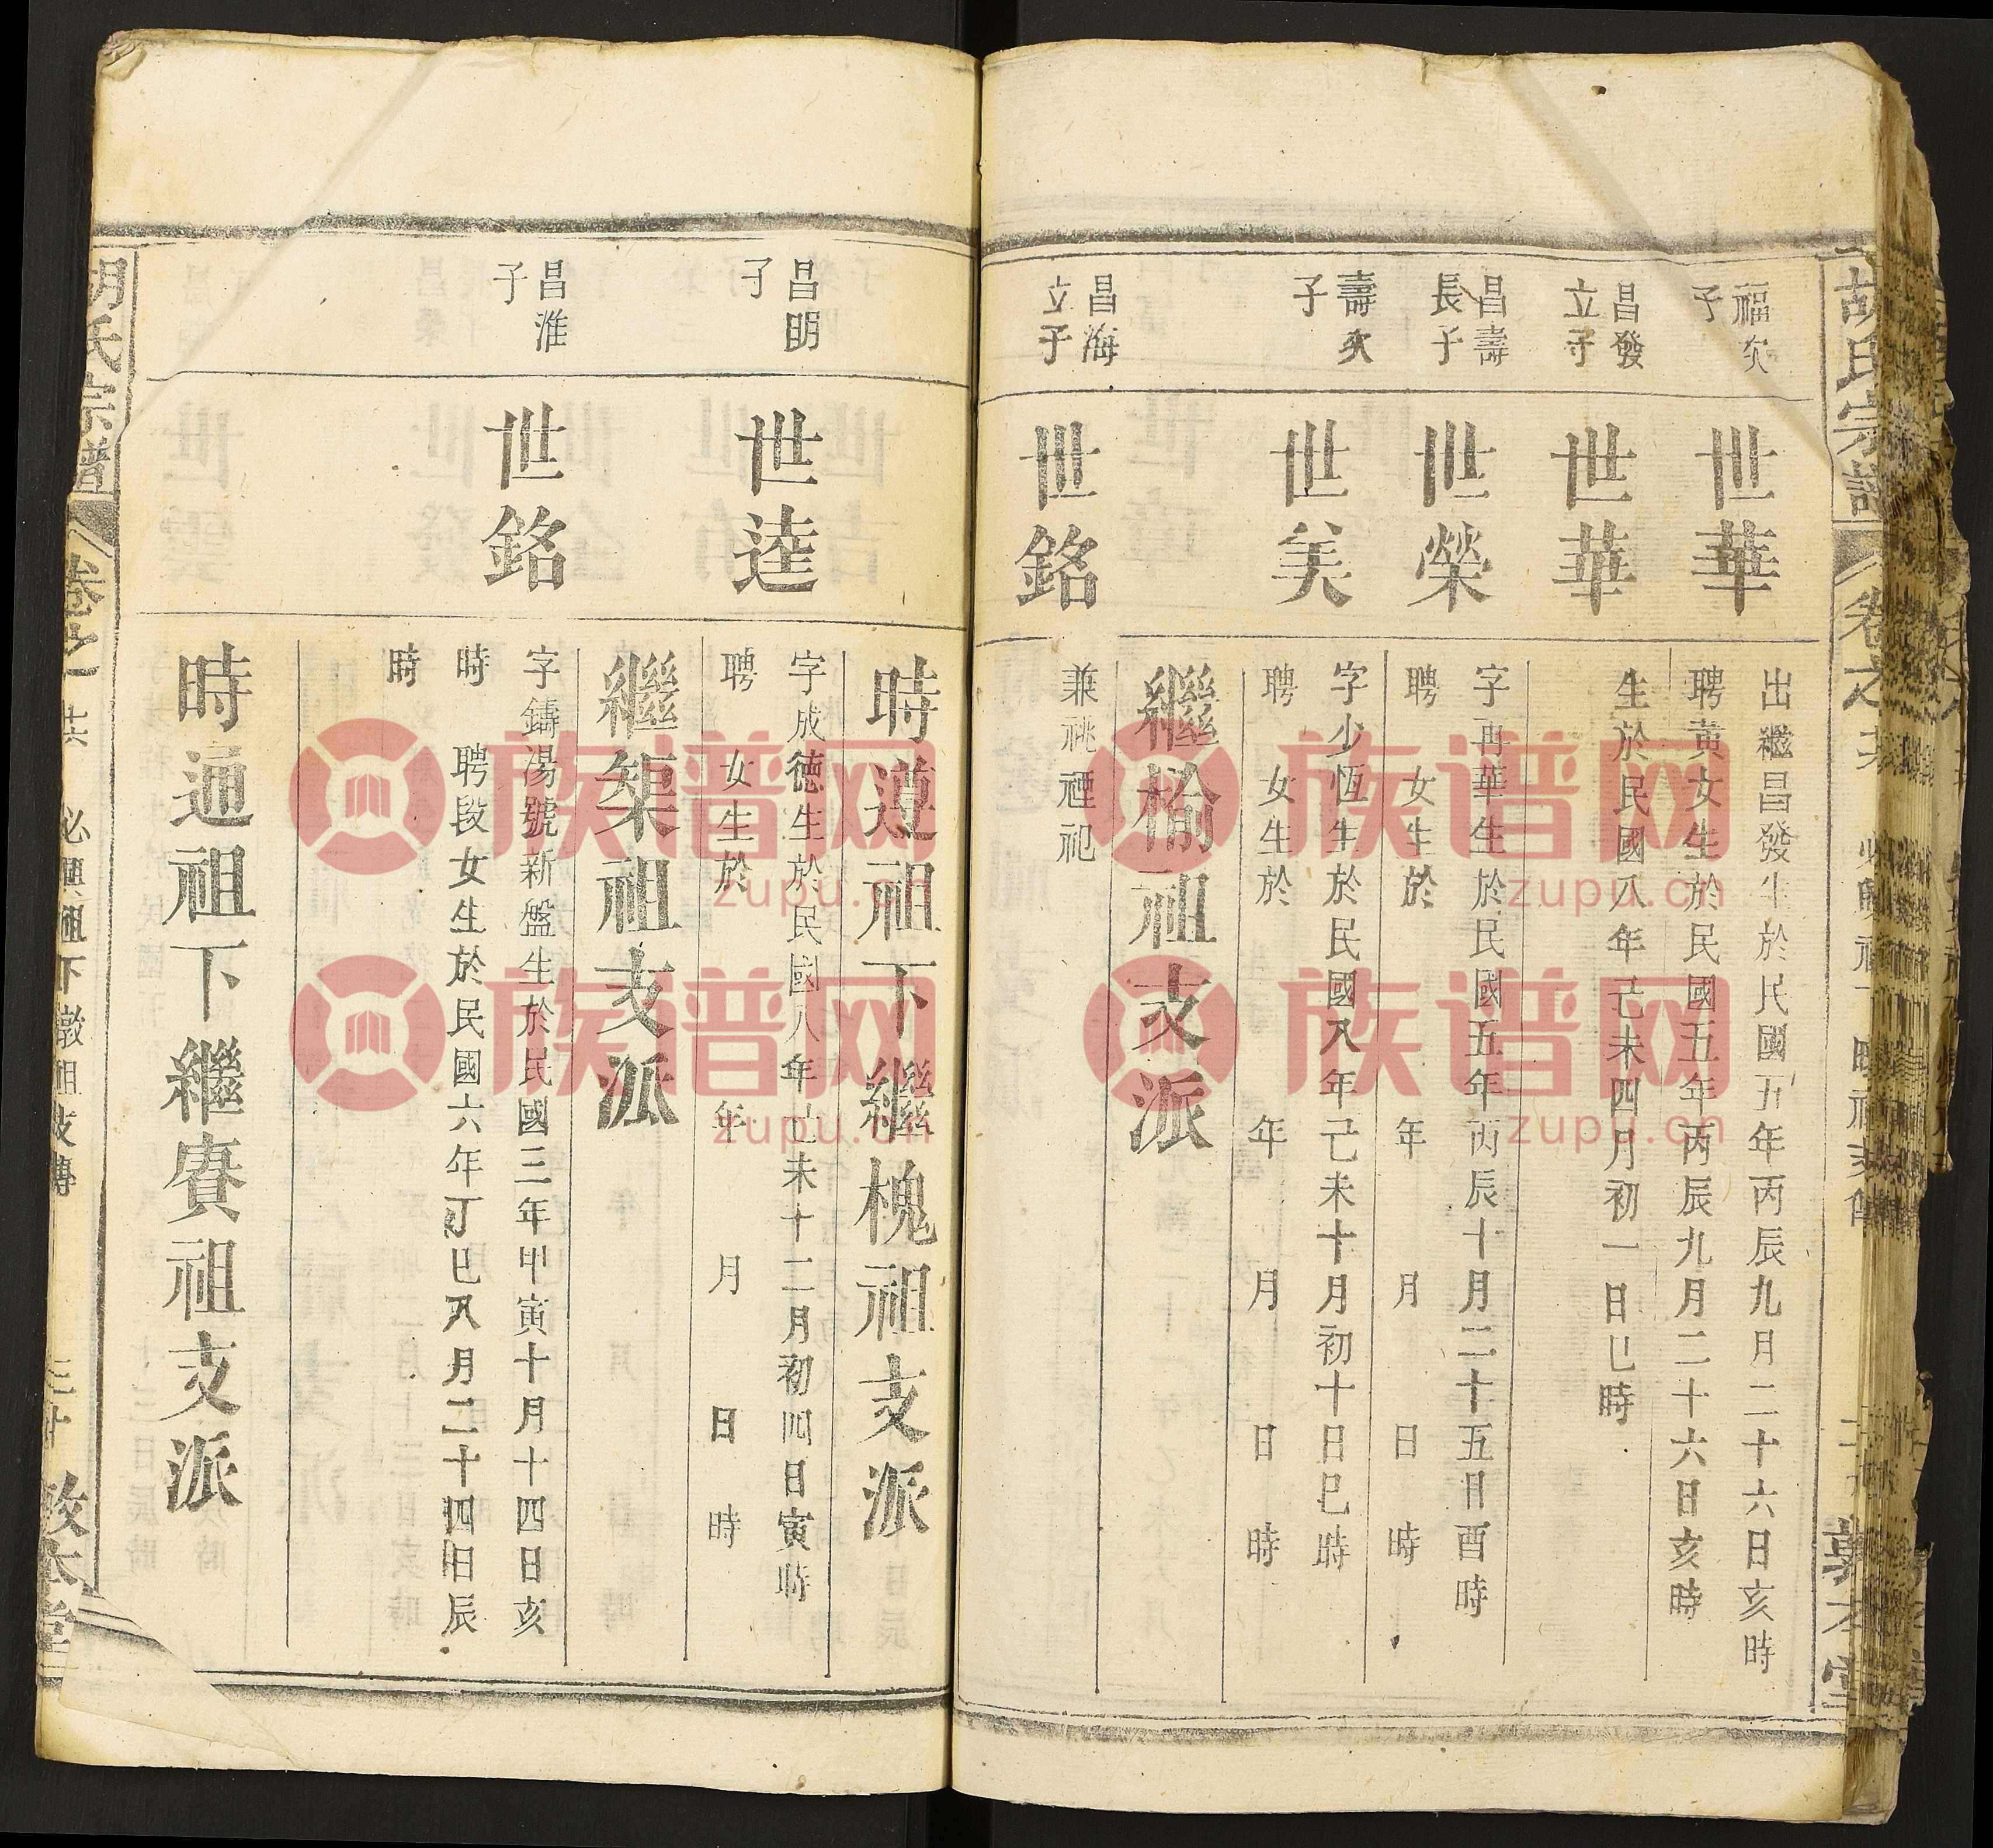 福次
子
世華
出繼昌發生於民國五年丙辰九月二十六日亥時
聘黃女生於民國五年丙辰九月二十六日亥時
昌發
立子
世華
生於民國八年己未四月初一日巳時
昌壽
長子
世榮
字再華生於民國五年丙辰十月二十五日酉時
聘 女生於 年 月 日 時
壽次
子
世美
字少恆生於民國八年己未十月初十日巳時
聘 女生於 年 月 日 時
繼榆祖支派
昌海
立子
世銘
兼祧禋祀
時遵祖下繼槐祖支派
昌明
子
世逵
字成德生於民國八年己未十二月初四日寅時
聘 女生於 年 月 日 時
繼榘祖支派
昌淮
子
世銘
字鑄湯號新盤生於民國三年甲寅十月十四日亥
時 聘段女生於民國六年丁巳八月二十四日辰
時
時通祖下繼賡祖支派
胡氏宗譜
卷之
必興祖下墩祖支傳
三十
敦本堂
族谱网
zupu.cn
族谱网
zupu.cn
族谱网
zupu.cn
族谱网
zupu.cn